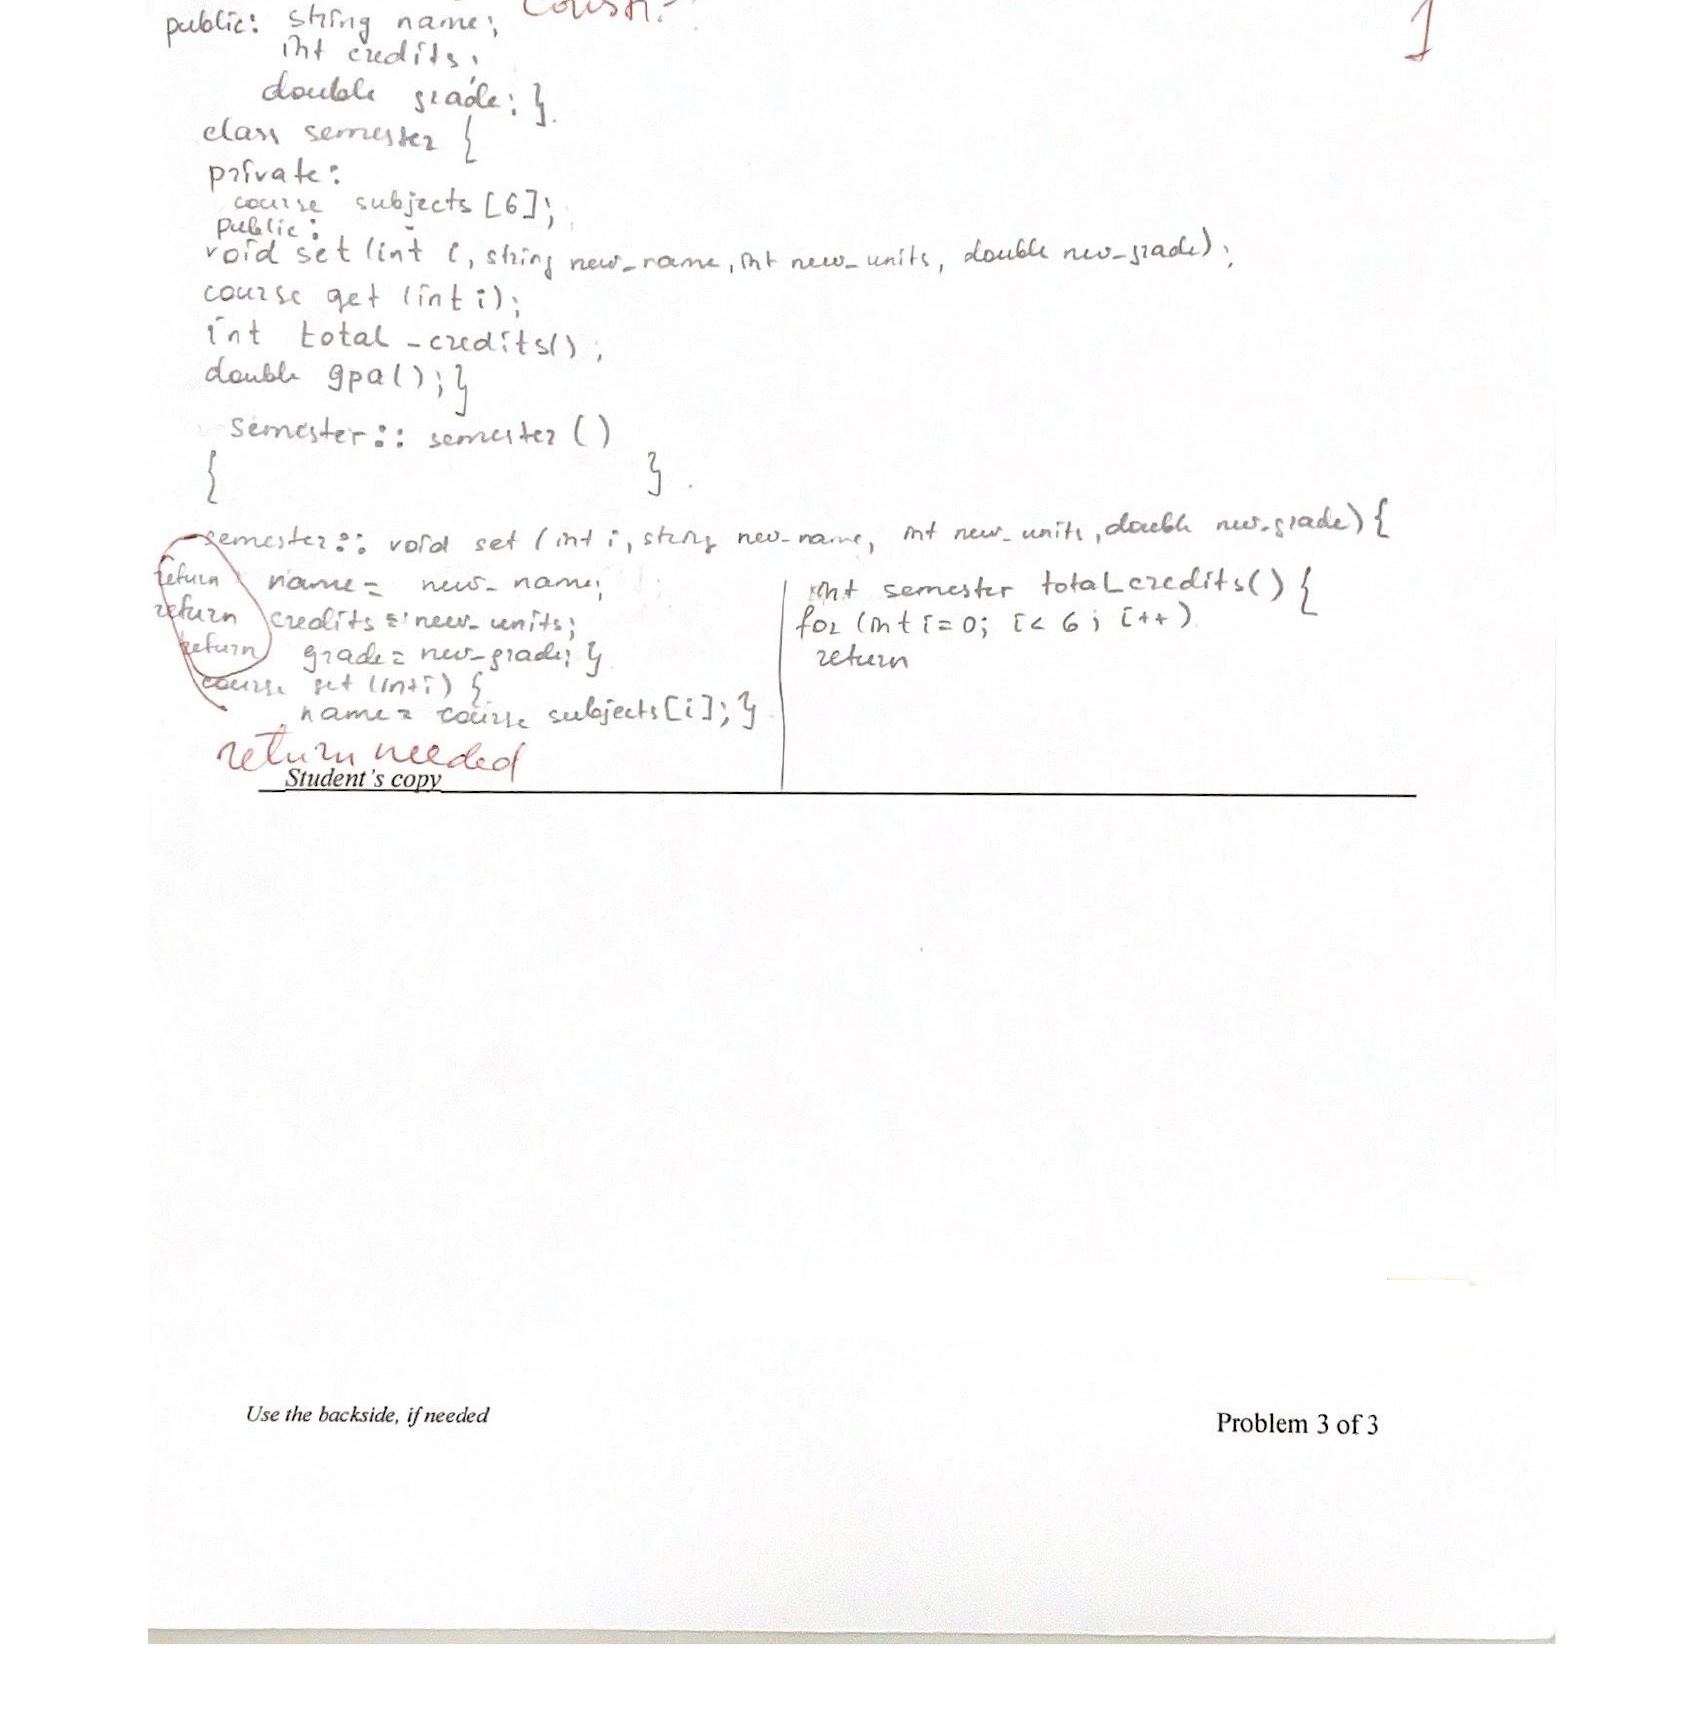 public: string name; Const.
1
int credits;
double grade; }.
class semester {
private:
course subjects [6];
public:
void set (int i, string new_name, int new_units, double new_grade);
course get (int i);
int total_credits();
double gpa(); }
semester:: semester ()
{ }.
semester:: void set (int i, string new_name, int new_units, double new_grade) {
return name = new_name;
return credits = new_units;
return grade = new_grade; }
course set (int i) {
name = course subjects[i]; }
return needed
int semester total credits() {
for (int i=0; i<6; i++)
return
Student's copy
Use the backside, if needed
Problem 3 of 3